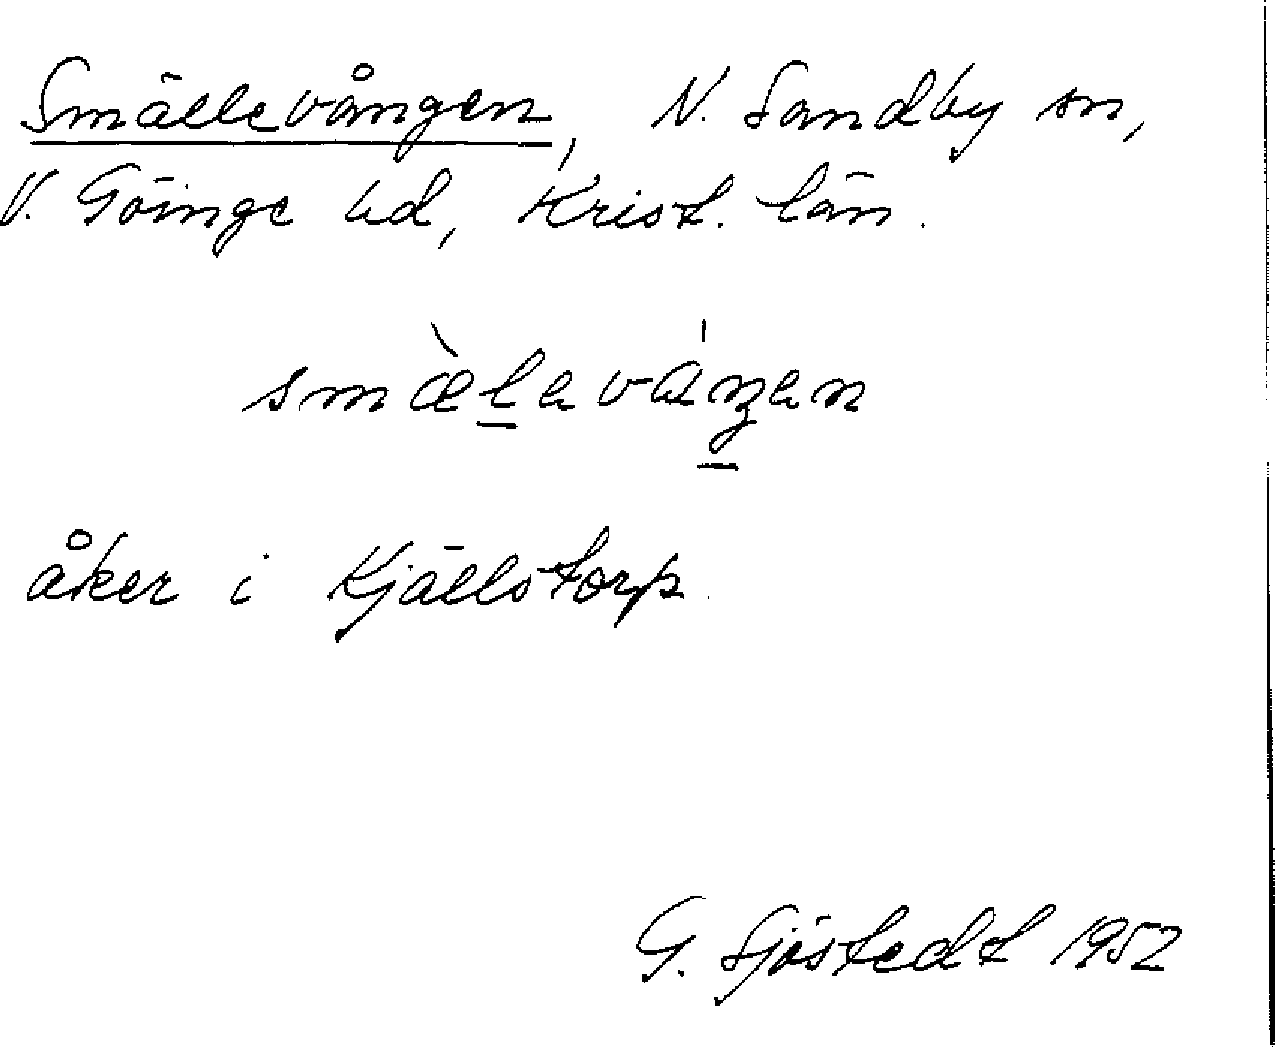 Smällevången, N. Sandby sn,
V. Göinge hd, Krist. län.
smæ̀l̠ava̍ŋ̠an
åker i Kjällstorp.
G. Sjöstedt 1952